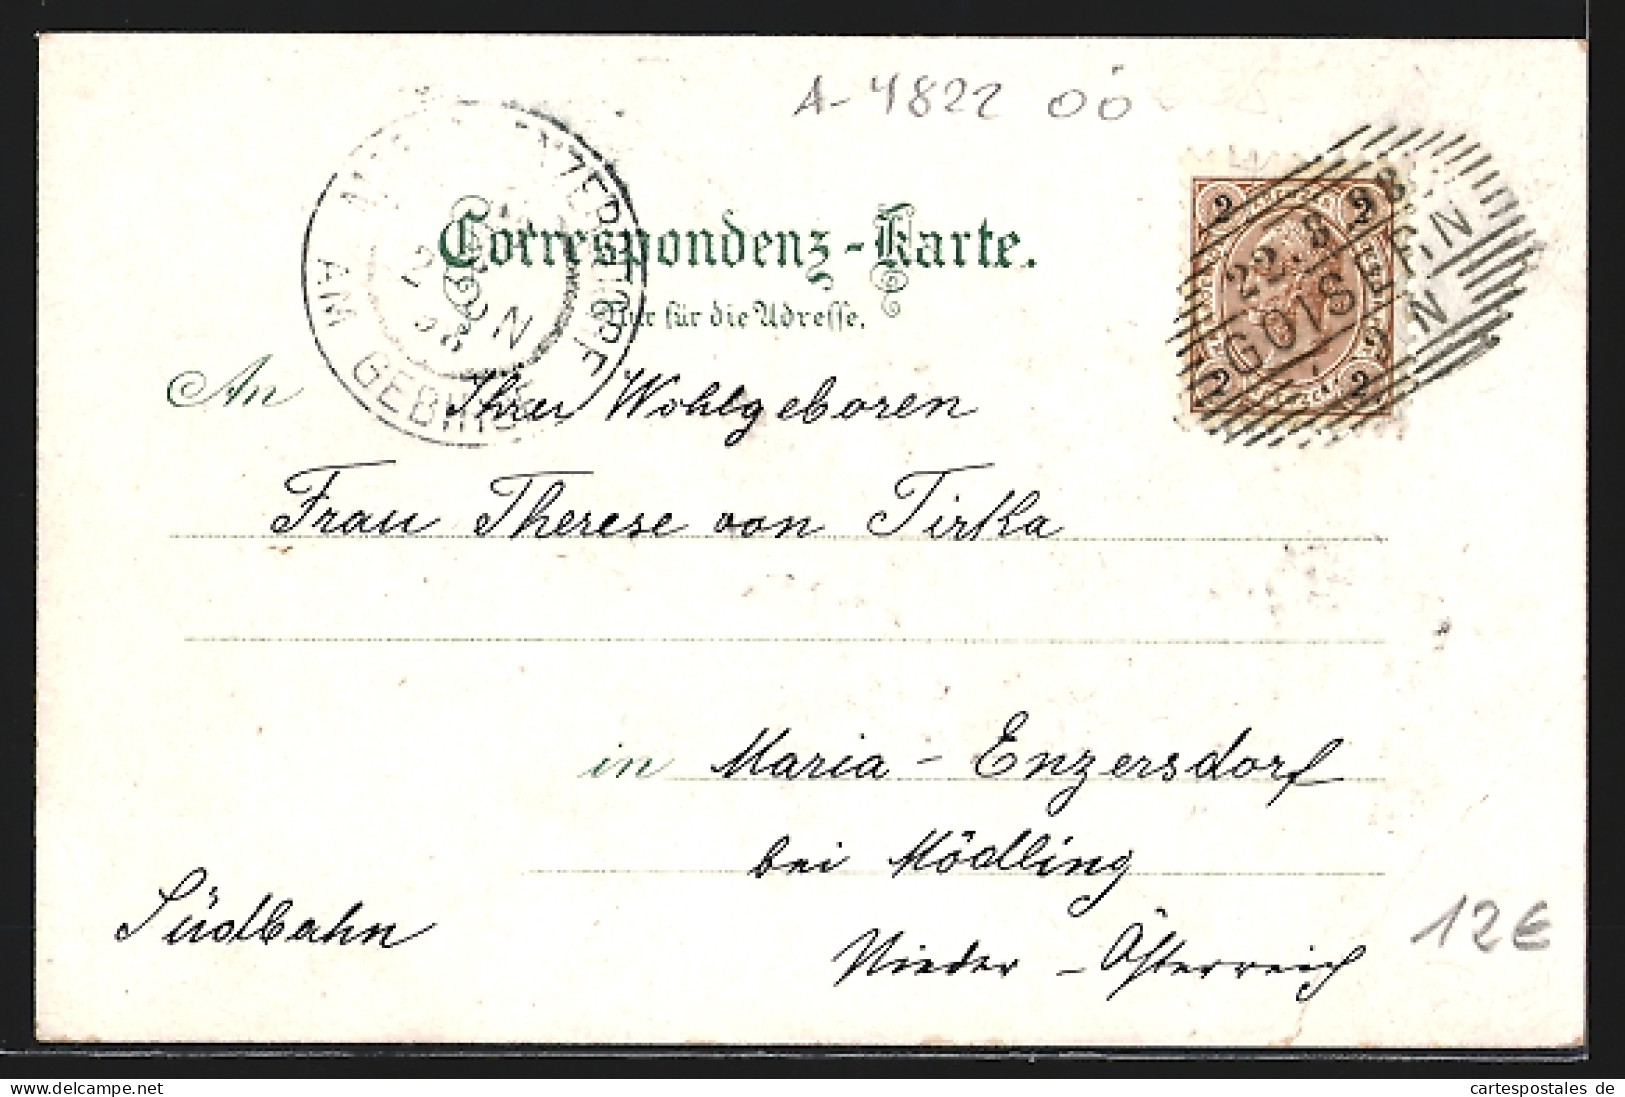 A-4822 OÖ
2 2
22. 8 98
GOISERN
2 2
ENZERSDORF
AM GEBIRGE
Correspondenz-Karte.
Nur für die Adresse.
An Ihrer Wohlgeboren
Frau Therese von Tirka
in Maria - Enzersdorf
bei Mödling
Südbahn
Nieder - Österreich
12€
cartespostales de